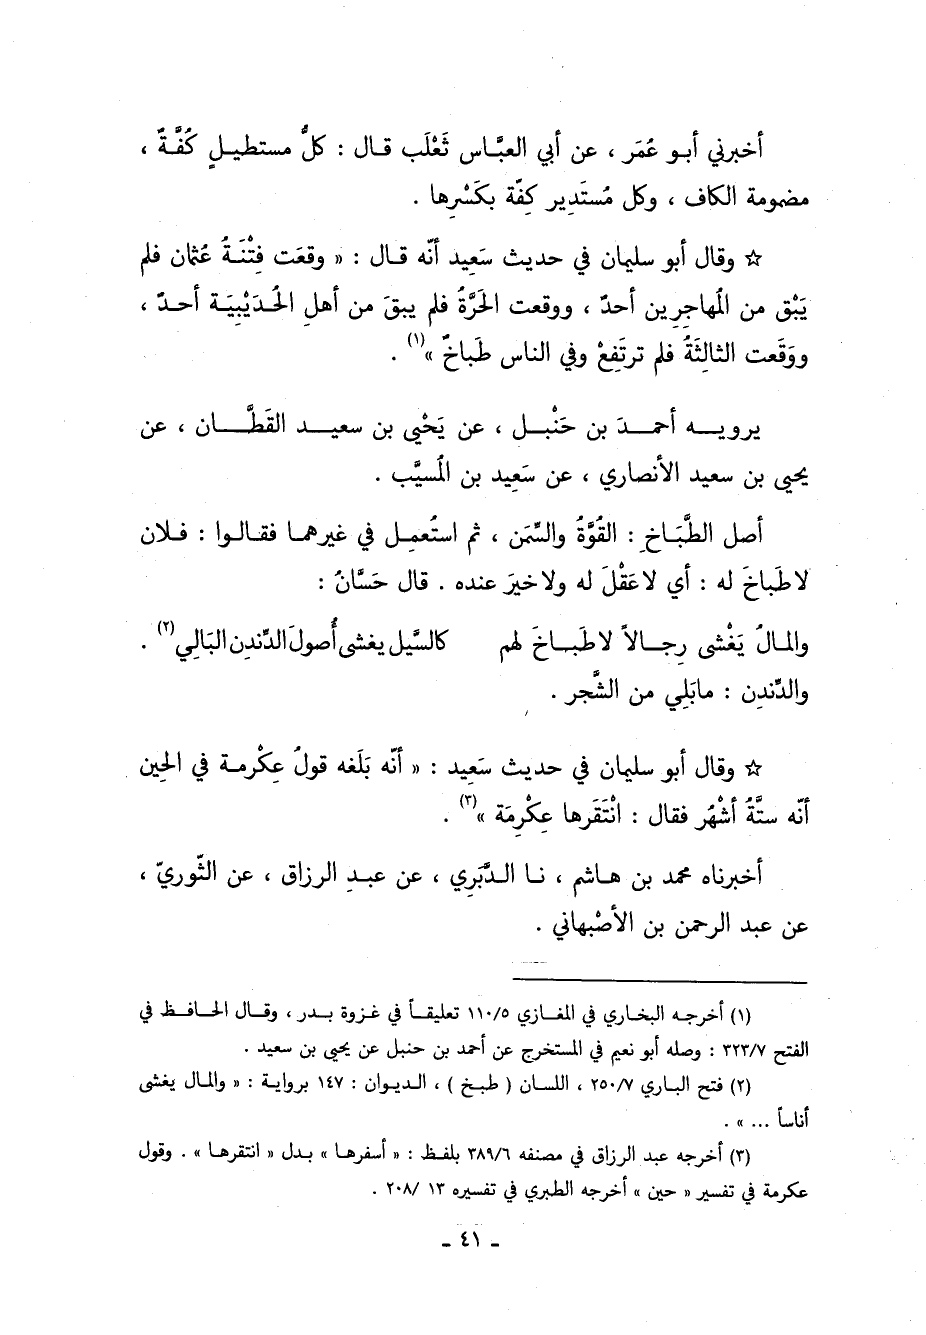 أخبرني أبو عُمَر ، عن أبي العبَّاس ثَعْلَب قال : كلُّ مستطيلٍ كُفَّةٌ ،
مضمومة الكاف ، وكل مُستَدِير كِفّة بكَسْرِها .
☆ وقال أبو سليمان في حديث سَعِيد أنّه قال : « وقعَت فِتْنَةُ عُثمان فلم
يَبْق من المُهاجِرِين أحدٌ ، ووقعت الحَرَّةُ فلم يبقَ من أهلِ الحُدَيْبِيَة أحدٌ ،
ووَقَعت الثالِثَةُ فلم ترتَفِعْ وفي الناس طَباخٌ »(١) .
يرويه أحمدَ بن حَنْبل ، عن يَحْيى بن سعيد القَطَّان ، عن
يحيى بن سعيد الأنصاري ، عن سَعِيد بن المُسيَّب .
أصل الطَّبَاخِ : القُوَّةُ والسِّمَن ، ثم استُعمِل في غيرهما فقالوا : فلان
لا طَباخَ له : أي لا عَقْلَ له ولا خيرَ عنده . قال حَسَّانُ :
والمالُ يَغْشى رِجالاً لا طَبَاخَ لهم كالسَّيل يغشى أُصولَ الدِّندِن البَالِي(٢) .
والدِّندِن : ما بَلِي من الشَّجر .
☆ وقال أبو سليمان في حديث سَعِيد : « أنّه بَلَغه قولُ عِكْرمة في الحِين
أنّه ستَّةُ أشْهُر فقال : انْتَقَرها عِكْرِمَة »(٣) .
أخبرناه محمد بن هاشم ، نا الدَّبَرِي ، عن عبدِ الرزاق ، عن الثّوريّ ،
عن عبد الرحمن بن الأصْبهاني .
(١) أخرجه البخاري في المغازي ١١٠/٥ تعليقاً في غزوة بدر ، وقال الحافظ في
الفتح ٣٢٣/٧ : وصله أبو نعيم في المستخرج عن أحمد بن حنبل عن يحيى بن سعيد .
(٢) فتح الباري ٢٥٠/٧ ، اللسان ( طبخ ) ، الديوان : ١٤٧ برواية : « والمال يغشى
أناساً ... » .
(٣) أخرجه عبد الرزاق في مصنفه ٣٨٩/٦ بلفظ : « أسفرها » بدل « انتقرها » . وقول
عكرمة في تفسير « حين » أخرجه الطبري في تفسيره ١٣ /٢٠٨ .
ـ ٤١ ـ